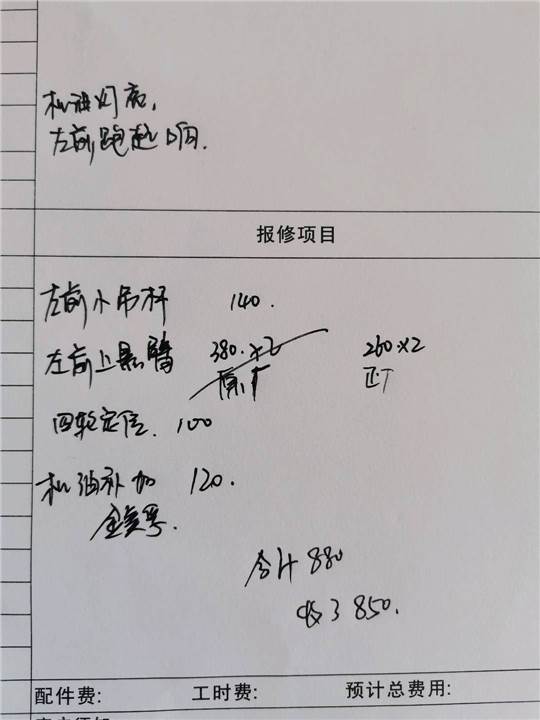 机油灯亮,
左前跑起响.
报修项目
左前小吊杆 140.
左前上悬臂 380.×2 260×2
原厂 正厂
四轮定位. 100
机油补加 120.
金美孚.
合计 880
收了 850.
配件费: 工时费: 预计总费用: